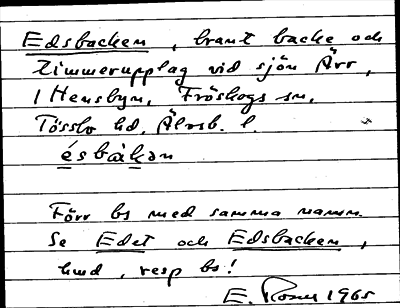 Edsbacken, brant backe och
timmerupplag vid sjön Ärr,
i Hensbyn, Fröskogs sn,
Tössbo hd, Älvsb. l.
ésbàkan
Förr bs med samma namn.
Se Edet och Edsbacken,
hmd, resp bs!
E. 1965